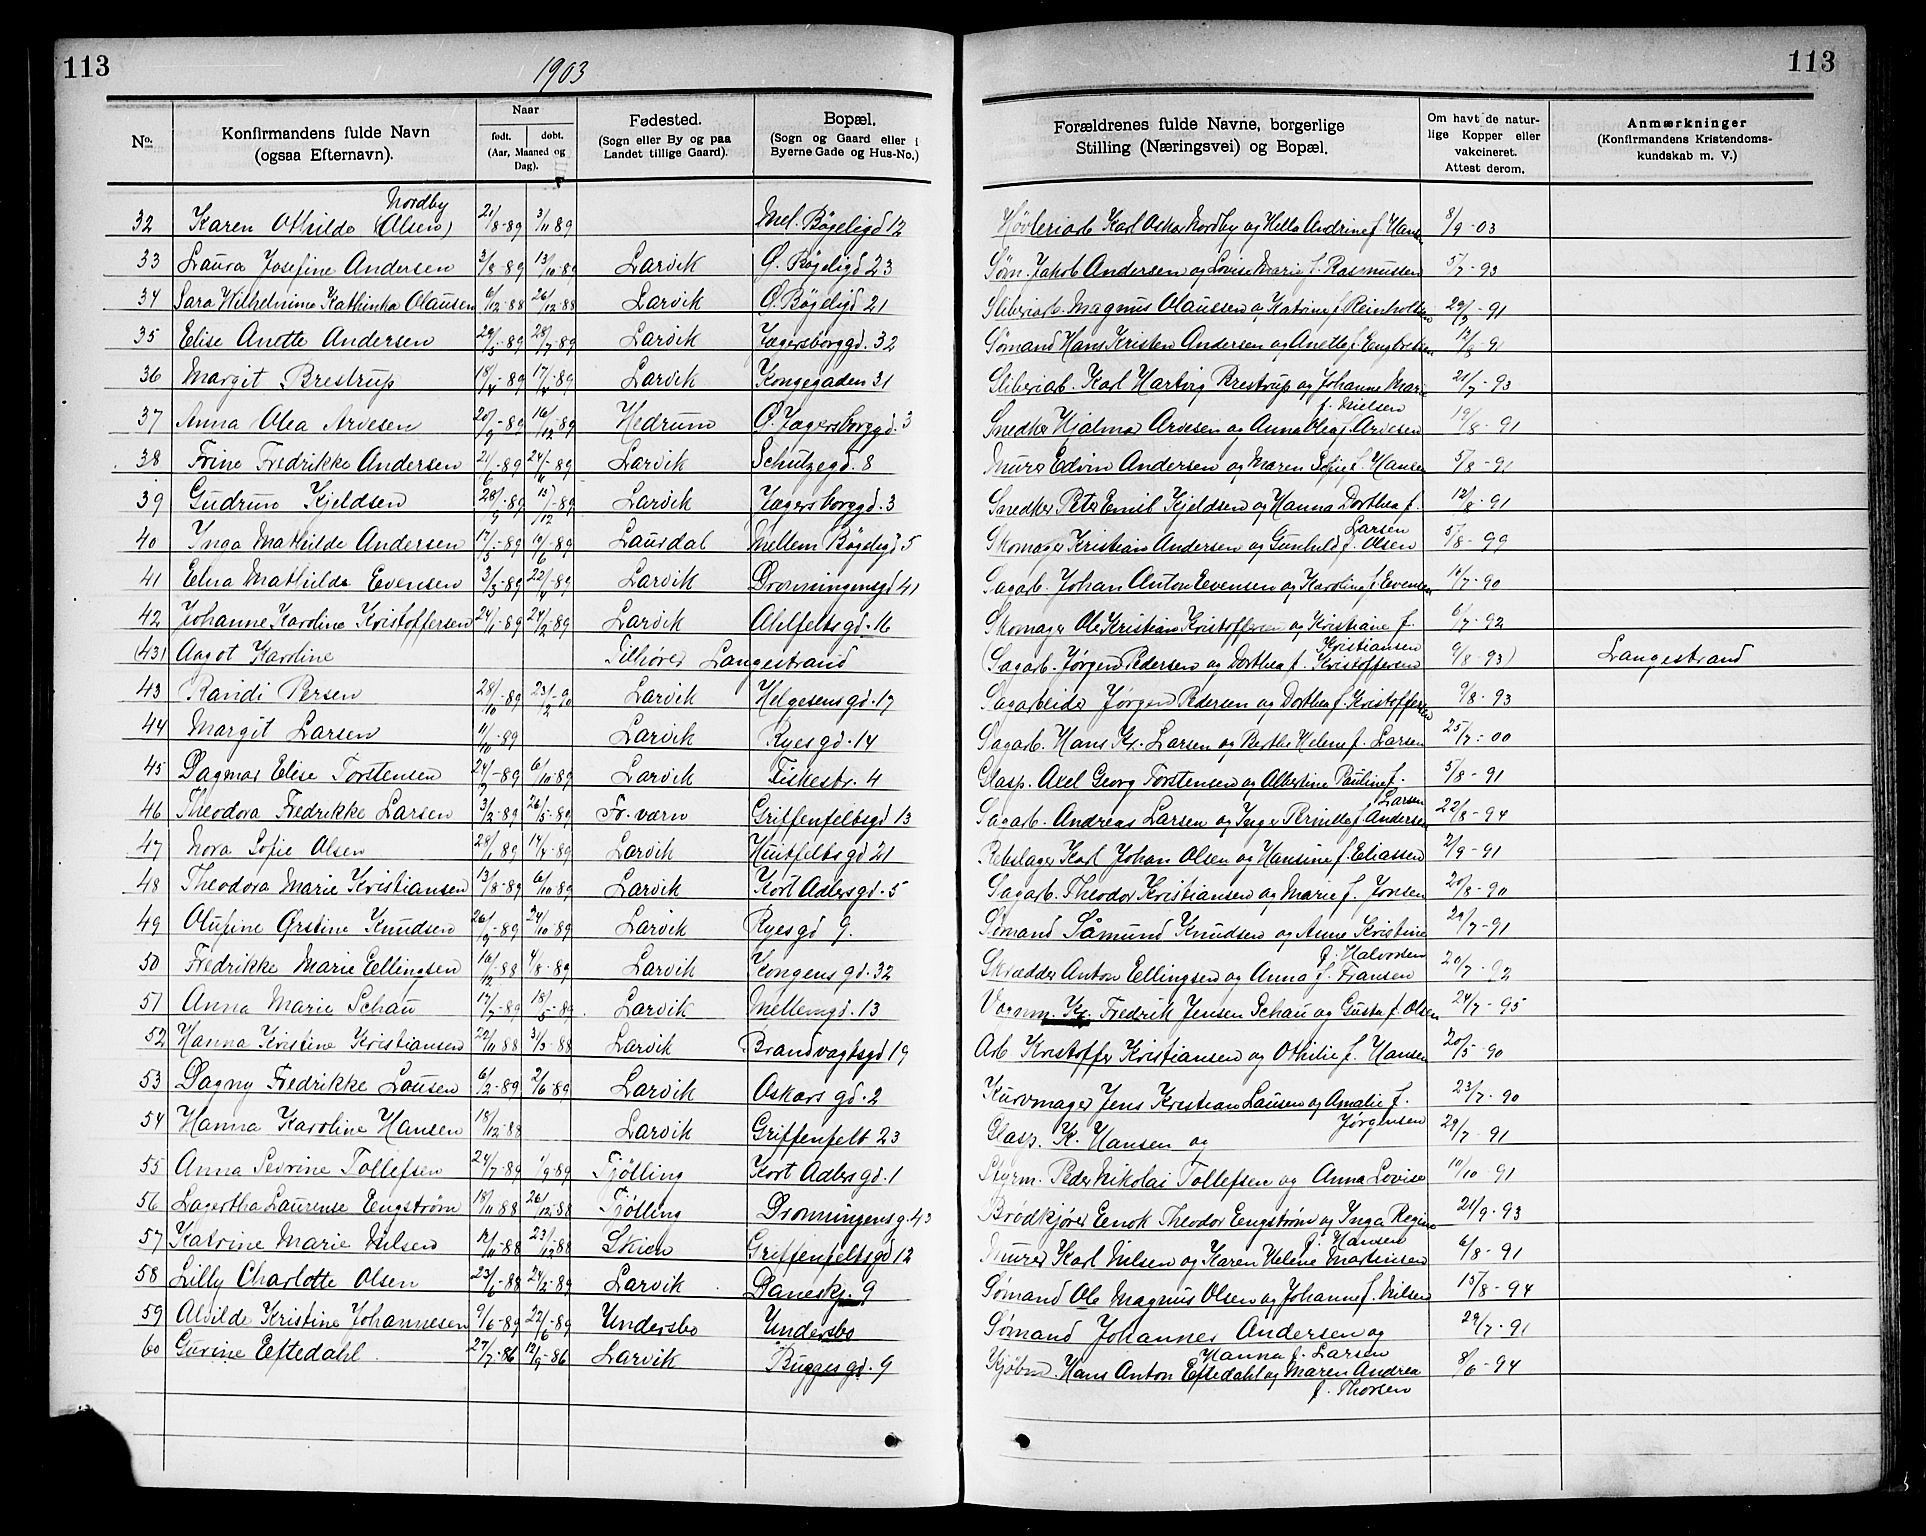 113
1903
113
No.
Konfirmandens fulde Navn
(ogsaa Efternavn).
Naar
født. døbt.
(Aar, Maaned og Dag).
Fødested.
(Sogn eller By og paa
Landet tillige Gaard).
Bopæl.
(Sogn og Gaard eller i
Byerne Gade og Hus-No.)
Forældrenes fulde Navne, borgerlige
Stilling (Næringsvei) og Bopæl.
Om havt de natur-
lige Kopper eller
vakcineret.
Attest derom.
Anmærkninger
(Konfirmandens Kristendoms-
kundskab m. V.)
Nordby
32 Karen Othilde (Olsen) 21/8-89 3/11 89 Mel. Bøgeligd 12 Høvleriarb Karl Oskar Nordby og Helle Andrine f. Hansen 8/9-03
33 Laura Josefine Andersen 3/8-89 13/10-89 Larvik Ø. Bøgeligd 23 Søm. Jakob Andersen og Lovise Marie f. Rasmussen 5/7-93
34 Sara Wilhelmine Kathinka Olausen 6/12-88 26/12-88 Larvik Ø. Bøgeligd 21 Sliberiarb. Magnus Olaussen og Katrine f. Reinholdsen 29/7-91
35 Elise Anette Andersen 29/5-89 28/7-89 Larvik Jægersborggd. 32 Sømand Hans Kristen Andersen og Anette f. Engbretsen 12/8-91
36 Margit Brestrup 18/4-89 17/4-89 Larvik Kongegaden 31 Sliberiab. Karl Hartvig Brestrup og Johanne Marie 21/7-93
f. Nielsen
37 Anna Olea Arvesen 20/9-89 16/12-89 Hedrum Ø. Jægersborggd. 3 Snedker Hjalmar Arvesen og Anna Olea f. Arvesen 19/8-91
38 Trine Fredrikke Andersen 24/6-89 24/11-89 Larvik Schulzegd. 8 Murer Edvin Andersen og Maren Sofie f. Hansen 5/8-91
39 Gudrun Kjeldsen 28/9-89 15/12-89 Larvik Jægersborggd. 3 Snedker Peter Emil Kjeldsen og Hanna Dorthea f. 12/8-91
Larsen
40 Inga Mathilde Andersen 17/5-89 19/6-89 Laurdal Mellem Bøgeligd 5 Skomager Kristian Andersen og Gunhild f. Olsen 5/8-99
41 Elna Mathilde Evensen 3/3-89 22/4-89 Larvik Dronningensgd 41 Sagarb. Johan Anton Evensen og Karoline f. Evensen 16/7-90
42 Johanne Karoline Kristoffersen 24/1-89 24/2-89 Larvik Ahlfeltsgd. 16 Skomager Ole Kristian Kristoffersen og Kristiane f. 6/7-92
Kristiansen
(43) Aagot Karoline Tilhører Langestrand (Sagarb. Jørgen Pedersen og Dorthea f. Kristoffersen 9/8-93) Langestrand
43 Randi Persen 28/10-89 23/2-90 Larvik Helgesensgd. 17 Sagarbeider Jørgen Pedersen og Dorthea f. Kristoffersen 9/8-93
44 Margit Larsen 4/10-89 Larvik Ryesgd. 14 Sagarb. Hans Kr. Larsen og Berthe Helene f. Larsen 25/7-00
45 Dagmar Elise Torstensen 24/2-89 6/10-89 Larvik Fiskestr. 4 Glasp. Axel Georg Torstensen og Albertine Pauline f. 5/8-91
Larsen
46 Theodora Fredrikke Larsen 3/2-89 26/5-89 Fr. værn Griffenfeltsgd 13 Sagarb. Andreas Larsen og Inger Pernille f. Andersen 22/8-94
47 Nora Sofie Olsen 28/1-89 14/4-89 Larvik Huitfeltsgd 21 Rebslager Karl Johan Olsen og Hansine f. Eliassen 2/9-91
48 Theodora Marie Kristiansen 13/8-89 6/10-89 Larvik Kort Adlersgd. 5 Sagarb. Theodor Kristiansen og Marie f. Jonsen 20/8-90
49 Olufine Ørstine Knudsen 26/9-89 24/10-89 Larvik Ryesgd 9. Sømand Såmund Knudsen og Anne Kristine 29/7-91
f. Halvorsen
50 Fredrikke Marie Ellingsen 16/12-88 4/8-89 Larvik Kongensgd. 32 Skrædder Anton Ellingsen og Anna f. Fransen 20/7-92
51 Anna Marie Schau 17/3-89 18/5-89 Larvik Mellemgd. 13 Vognm. Kr. Fredrik Jensen Schau og Gusta f. Olsen 24/7-95
52 Hanna Kristine Kristiansen 22/11 88 3/3-88 Larvik Brandvagtsgd 19 Arb Kristoffer Kristiansen og Othilie f. Hansen 20/5-90
53 Dagny Fredrikke Lausen 6/2-89 2/6-89 Larvik Oskarsgd. 2 Kurvmager Jens Kristian Lausen og Amalie f. 23/7-90
Jørgensen
54 Hanna Karoline Hansen 18/12-88 Larvik Griffenfelt 23 Glasp. K. Hansen og 29/7-91
55 Anna Sevrine Tollefsen 24/7-89 1/9-89 Tjølling Kort Adlersgd. 1 Styrm. Peder Nikolai Tollefsen og Anna Lovise 10/10-91
56 Lagertha Laurense Engstrøm 18/11-88 26/12-88 Tjølling Dronningensg. 43 Brødkjører Enok Theodor Engstrøm og Inga Regine 21/9-93
f. Hansen
57 Katrine Marie Nilsen 12/11-88 23/12-88 Skien Griffenfeltsgd 12 Murer Karl Nilsen og Karen Helene Martinsen 6/8-91
58 Lilly Charlotte Olsen 23/6-88 24/2-89 Larvik Daneskj. 9 Sømand Ole Magnus Olsen og Johanne f. Nilsen 15/8-94
59 Alvilde Kristine Johannesen 9/6-89 22/6-89 Undersbo Undersbo Sømand Johannes Andersen og 29/7-91
Hanna f. Larsen
60 Gurine Eftedahl 27/7-86 12/9-86 Larvik Buggesgd. 9 Kjøbm. Hans Anton Eftedahl og Maren Andrea 8/6-94
f. Thorsen